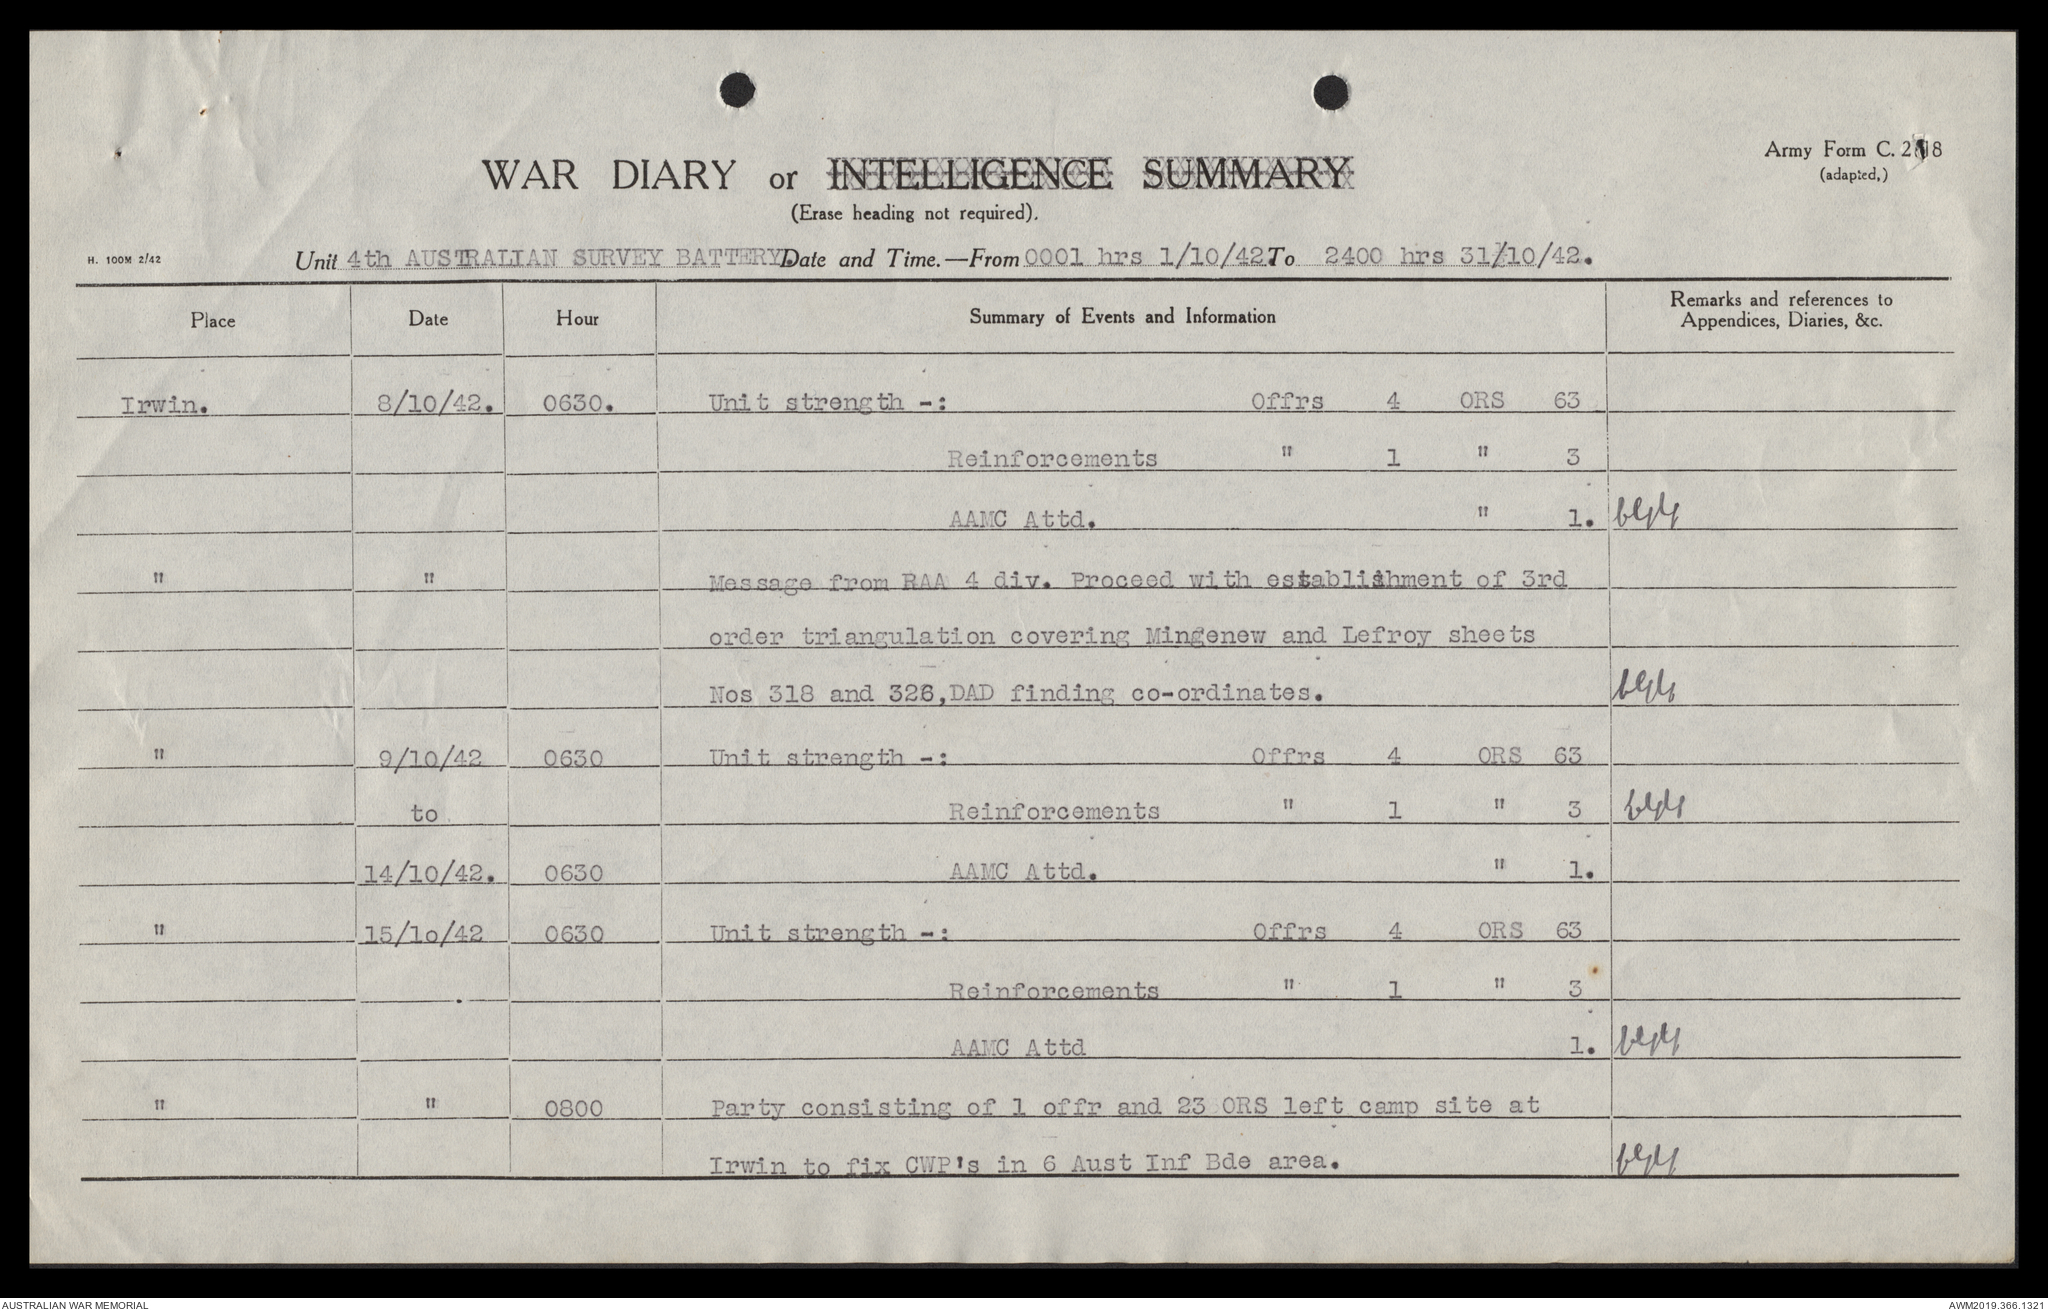 Army Form C. 2118
(adapted,)
WAR DIARY or INTELLIGENCE SUMMARY
(Erase heading not required).
H. 100M 2/42
Unit 4th AUSTRALIAN SURVEY BATTERY. Date and Time.—From 0001 hrs 1/10/42. To 2400 hrs 31/10/42.
Place Date Hour Summary of Events and Information Remarks and references to Appendices, Diaries, &c.
Irwin. 8/10/42. 0630. Unit strength -: Offrs 4 ORS 63
Reinforcements " 1 " 3
AAMC Attd. " 1.
" " Message from RAA 4 div. Proceed with establishment of 3rd
order triangulation covering Mingenew and Lefroy sheets
Nos 318 and 326,DAD finding co-ordinates.
" 9/10/42 0630 Unit strength -: Offrs 4 ORS 63
to Reinforcements " 1 " 3
14/10/42. 0630 AAMC Attd. " 1.
" 15/1o/42 0630 Unit strength -: Offrs 4 ORS 63
Reinforcements " 1 " 3
AAMC Attd 1.
" " 0800 Party consisting of 1 offr and 23 ORS left camp site at
Irwin to fix CWP's in 6 Aust Inf Bde area.
AUSTRALIAN WAR MEMORIAL AWM2019.366.1321